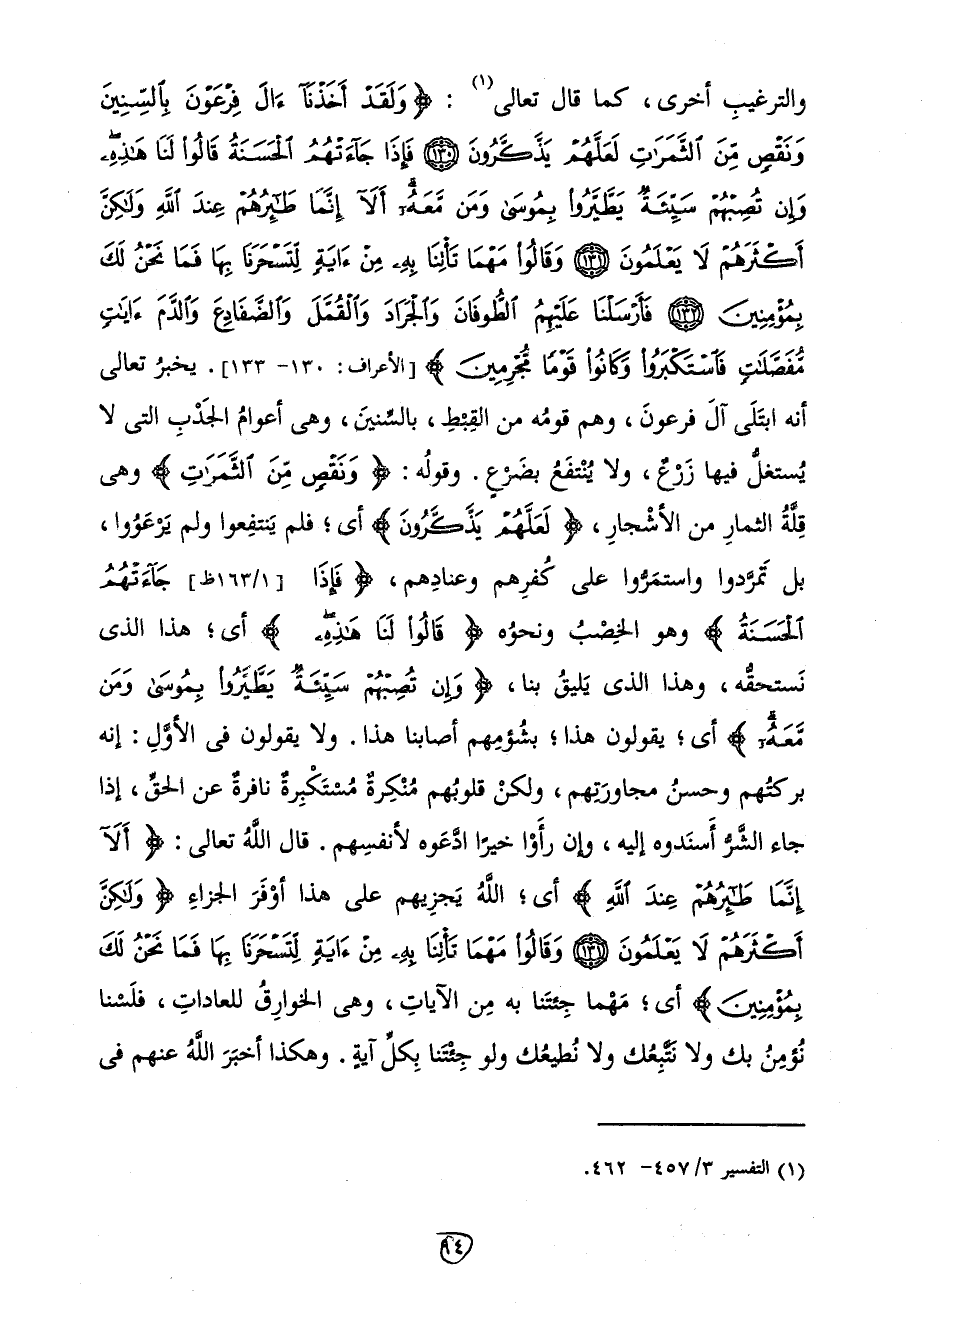 والترغيبِ أخرى، كما قال تعالى(١) : ﴿ وَلَقَدْ أَخَذْنَآ ءَالَ فِرْعَوْنَ بِٱلسِّنِينَ
وَنَقْصٍ مِّنَ ٱلثَّمَرَٰتِ لَعَلَّهُمْ يَذَّكَّرُونَ ﴿١٣٠﴾ فَإِذَا جَآءَتْهُمُ ٱلْحَسَنَةُ قَالُوا۟ لَنَا هَـٰذِهِۦۖ
وَإِن تُصِبْهُمْ سَيِّئَةٌ يَطَّيَّرُوا۟ بِمُوسَىٰ وَمَن مَّعَهُۥٓۗ أَلَآ إِنَّمَا طَـٰٓئِرُهُمْ عِندَ ٱللَّهِ وَلَـٰكِنَّ
أَكْثَرَهُمْ لَا يَعْلَمُونَ ﴿١٣١﴾ وَقَالُوا۟ مَهْمَا تَأْتِنَا بِهِۦ مِنْ ءَايَةٍ لِّتَسْحَرَنَا بِهَا فَمَا نَحْنُ لَكَ
بِمُؤْمِنِينَ ﴿١٣٢﴾ فَأَرْسَلْنَا عَلَيْهِمُ ٱلطُّوفَانَ وَٱلْجَرَادَ وَٱلْقُمَّلَ وَٱلضَّفَادِعَ وَٱلدَّمَ ءَايَـٰتٍ
مُّفَصَّلَـٰتٍ فَٱسْتَكْبَرُوا۟ وَكَانُوا۟ قَوْمًا مُّجْرِمِينَ ﴾ [الأعراف: ١٣٠- ١٣٣]. يخبرُ تعالى
أنه ابتَلَى آلَ فرعونَ، وهم قومُه من القِبْطِ، بالسِّنينَ، وهى أعوامُ الجَدْبِ التى لا
يُستغلُّ فيها زَرْعٌ، ولا يُنْتفَعُ بضَرْعٍ. وقولُه: ﴿ وَنَقْصٍ مِّنَ ٱلثَّمَرَٰتِ ﴾ وهى
قِلَّةُ الثمارِ من الأشْجارِ، ﴿ لَعَلَّهُمْ يَذَّكَّرُونَ ﴾ أى؛ فلم يَنتفِعوا ولم يَرْعَوُوا،
بل تَمرَّدوا واستمَرُّوا على كُفرِهم وعنادِهم، ﴿ فَإِذَا [١/١٦٣ظ] جَآءَتْهُمُ
ٱلْحَسَنَةُ ﴾ وهو الخِصْبُ ونحوُه ﴿ قَالُوا۟ لَنَا هَـٰذِهِۦۖ ﴾ أى؛ هذا الذى
نَستحقُّه، وهذا الذى يَليقُ بنا، ﴿ وَإِن تُصِبْهُمْ سَيِّئَةٌ يَطَّيَّرُوا۟ بِمُوسَىٰ وَمَن
مَّعَهُۥٓۗ ﴾ أى؛ يقولون هذا؛ بشُؤمِهم أصابنا هذا. ولا يقولون فى الأوَّلِ: إنه
بركتُهم وحسنُ مجاورَتِهم، ولكنْ قلوبُهم مُنْكِرةٌ مُسْتَكْبِرةٌ نافرةٌ عن الحقِّ، إذا
جاء الشَّرُّ أسنَدوه إليه، وإن رأَوْا خيرًا ادَّعَوه لأنفسِهم. قال اللَّهُ تعالى: ﴿ أَلَآ
إِنَّمَا طَـٰٓئِرُهُمْ عِندَ ٱللَّهِ ﴾ أى؛ اللَّهُ يَجزِيهم على هذا أوْفَرَ الجزاءِ ﴿ وَلَـٰكِنَّ
أَكْثَرَهُمْ لَا يَعْلَمُونَ ﴿١٣١﴾ وَقَالُوا۟ مَهْمَا تَأْتِنَا بِهِۦ مِنْ ءَايَةٍ لِّتَسْحَرَنَا بِهَا فَمَا نَحْنُ لَكَ
بِمُؤْمِنِينَ ﴾ أى؛ مَهْما جِئتَنا به مِن الآياتِ، وهى الخوارِقُ للعاداتِ، فلَسْنا
نُؤمِنُ بك ولا نَتَّبِعُك ولا نُطيعُك ولو جِئْتَنا بِكلِّ آيةٍ. وهكذا أخبَرَ اللَّهُ عنهم فى
(١) التفسير ٣/ ٤٥٧- ٤٦٢.
٩٤